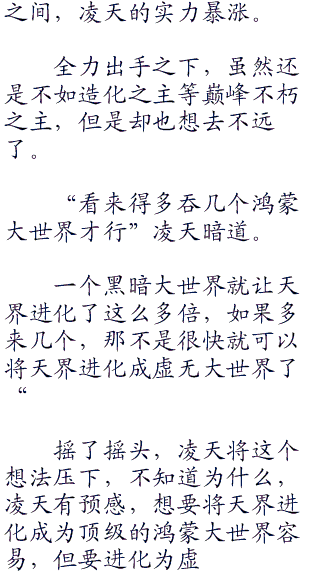 之间，凌天的实力暴涨。
全力出手之下，虽然还
是不如造化之主等巅峰不朽
之主，但是却也想去不远
了。
“看来得多吞几个鸿蒙
大世界才行”凌天暗道。
一个黑暗大世界就让天
界进化了这么多倍，如果多
来几个，那不是很快就可以
将天界进化成虚无大世界了
“
摇了摇头，凌天将这个
想法压下，不知道为什么，
凌天有预感，想要将天界进
化成为顶级的鸿蒙大世界容
易，但要进化为虚